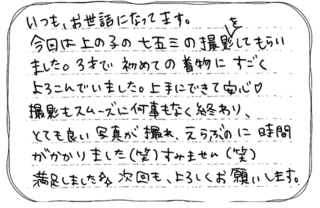 いつも、お世話になってます。
今日は上の子の七五三の撮影をしてもらい
ました。3才で初めての着物にすごく
よろこんでいました。上手にできて安心♡
撮影もスムーズに何事もなく終わり、
とても良い写真が撮れ、えらぶのに時間
がかかりました(笑)すみません(笑)
満足しました 次回も、よろしくお願いします。